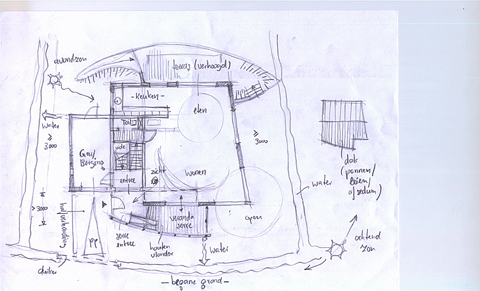 avondzon
terras (verhoogd)
-keuken-
eten
water
≥
3000
toil.
≥
3000
Gar/
Berging
entree
zicht
wonen
water
dak
(pannen/
leien/
of sedum)
>3000
PP
serre
entree
houten
vlonder
veranda
serre
open
water
ochtend
zon
- begane grond -